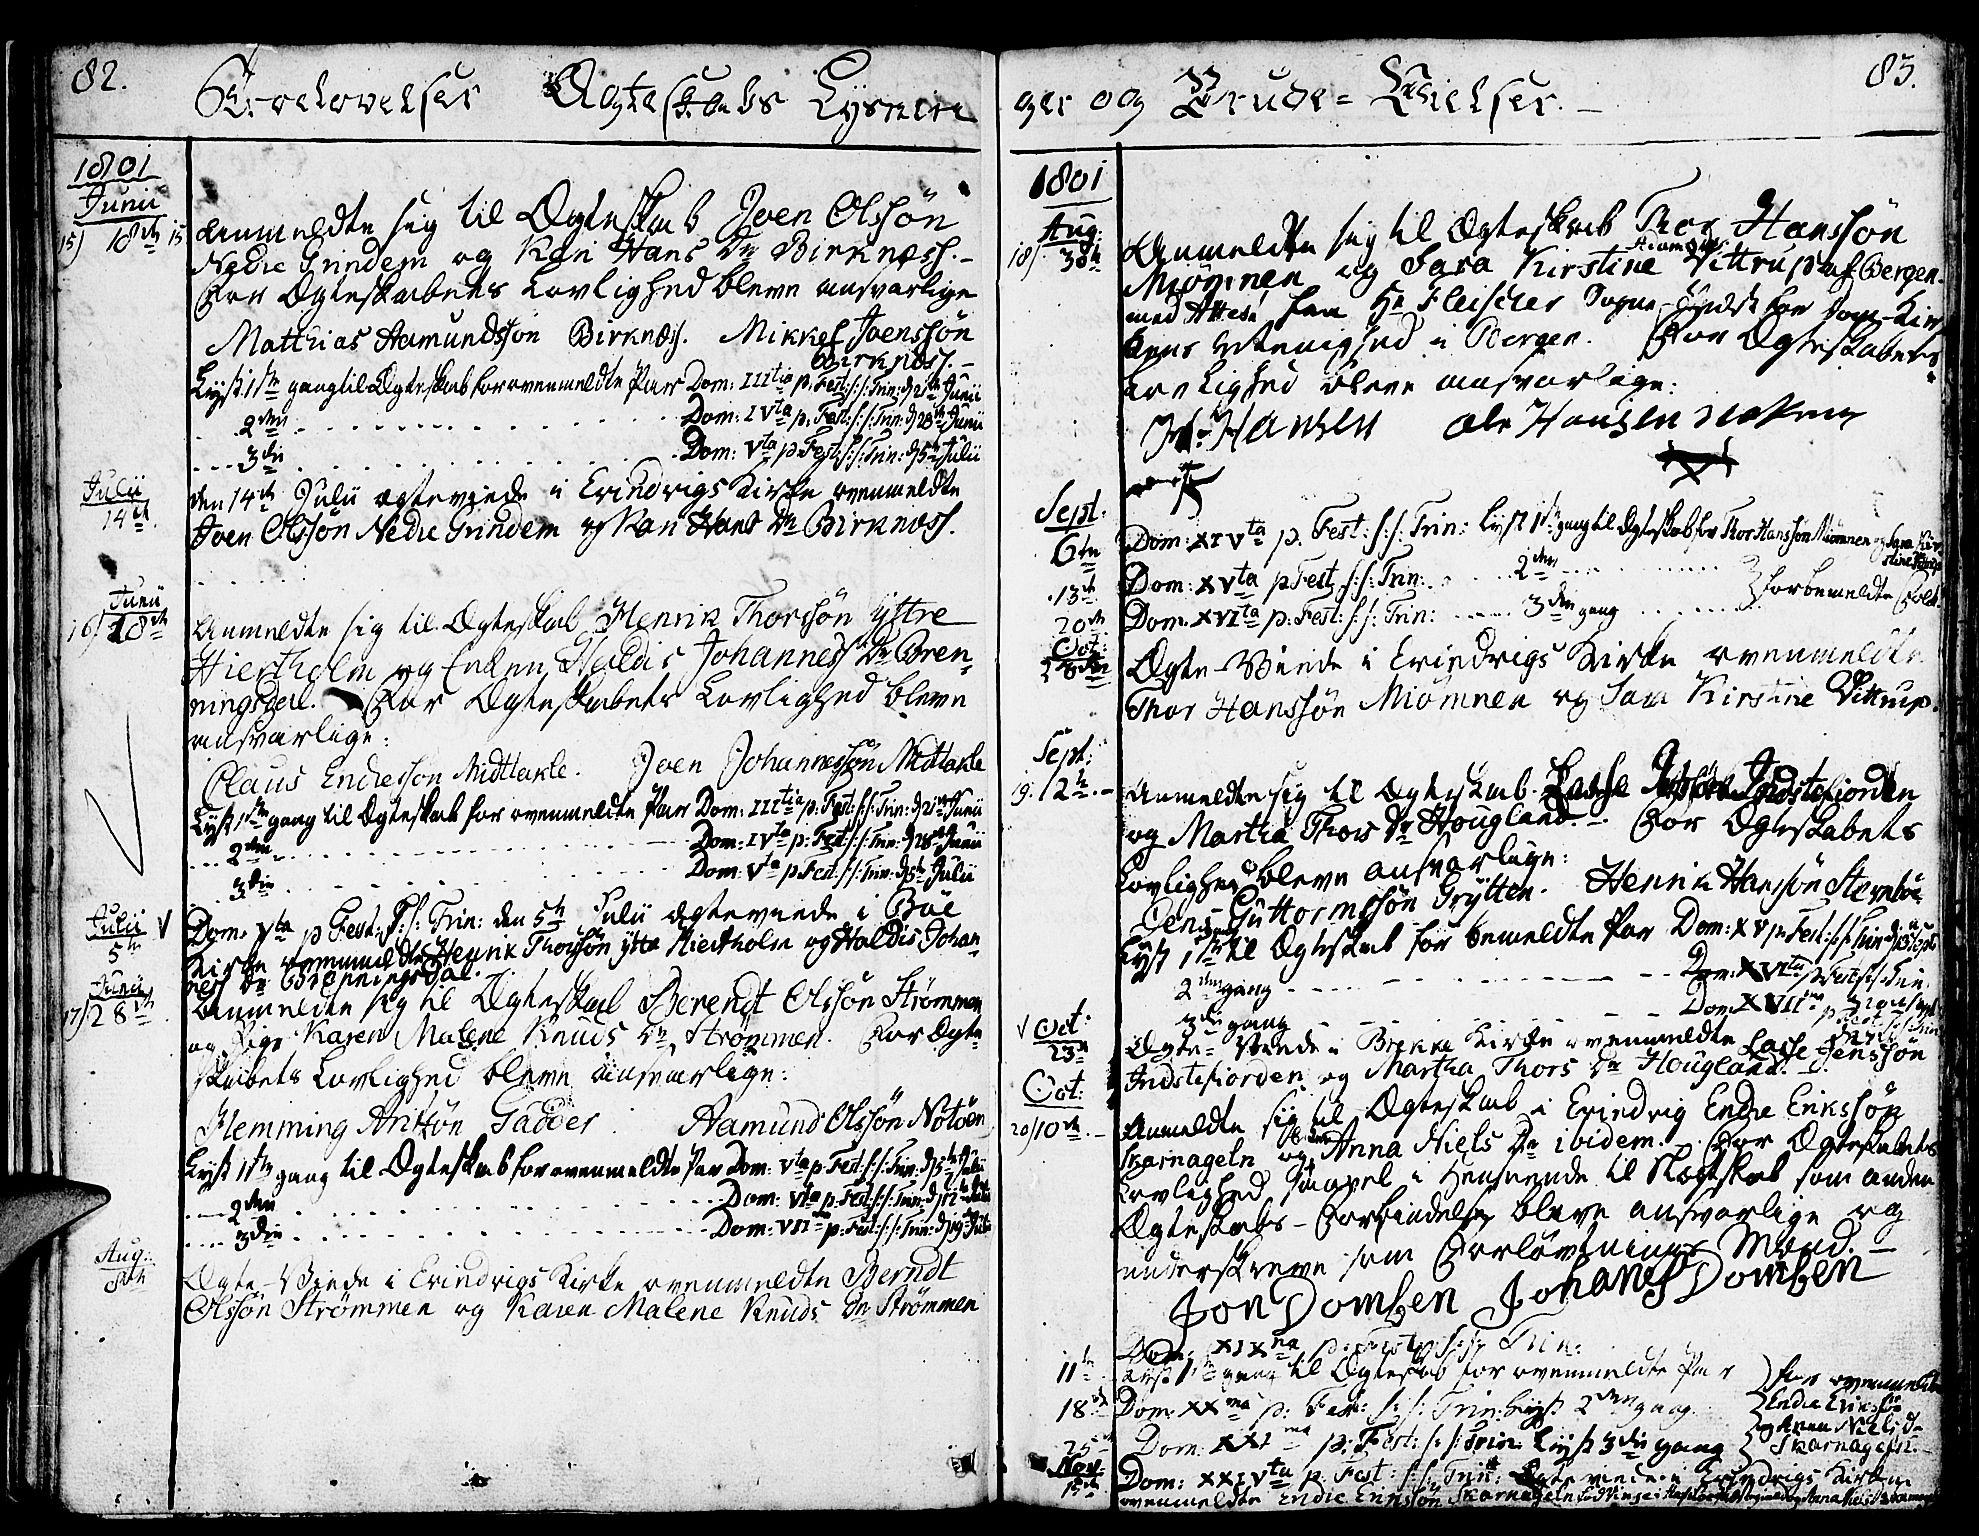 82.
Troelovelser Ægteskabs Lysnin
1801
Junii
15) 18de 15 Anmeldte sig til Ægteskab Joen Olssøn
Nedre Grindem og Kari Hans Dr Birknæss.
For Ægteskabets Lovlighed bleve ansvarlige
Matthias Aamundssøn Birknæss. Mikkel Joenssøn
Birknæss.
Lyst 1ste gang til Ægteskab for ovenmeldte Par Dom: IIItia p. Fest: s: s: Trin: d 21de Junii
2den Dom: IVta p: Fest: s: s: Trin: d 28de Junii
3die Dom: Vta p: Fest: s: s: Trin: d 5te Julii
Julii
14de
den 14de Julii ægteviede i Evindvigs Kirke ovenmeldte
Joen Olssøn Nedre Grindem og Kari Hans Dr Birknæss.
Junii
16) 18de
Anmeldte sig til Ægteskab Henrik Thorssøn Yttre
Hiertholm og Enken Haldis Johanness Dr Bren-
ningsdal. For Ægteskabets Lovlighed bleve
ansvarlige:
Claus Endressøn Midttakle. Joen Johannessøn Midttakle
Lyst 1ste gang til Ægteskab for ovenmeldte Par Dom: IIItia p: Fest: s: s: Trin: d 21de Junii
2den Dom: IVta p: Fest: s: s: Trin: d 28de Junii
3die Dom: Vta p Fest: s: s: Trin: d 5te Julii
Julii
5te
Dom: Vta p Fest: s: s: Trin: den 5te Julii ægteviede i Bøe
Kirke ovenmeldte Henrik Thorssøn Yttre Hiertholm og Haldis Johan-
ness Dr Brenningsdal.
Junii
17) 28de
Anmeldte sig til Ægteskab Berendt Olssøn Strømmen
og Pige Karen Malene Knuds Dr Strømmen. For Ægte-
skabets Lovlighed bleve ansvarlige:
Flemming Antzøn Gadder Aamund Olssøn Notøen
Lyst 1ste gang til Ægteskab for ovenmeldte Par Dom: Vta p: Fest: s: s: Trin: d 5te Julii
2den Dom: VIta p: Fest: s: s: Trin: d 12te Julii
3die Dom: VIIma p: Fest: s: s: Trin: d 19de Julii
Aug:
8de
Ægte-Viede i Evindvigs Kirke ovenmeldte Berndt
Olssøn Strømmen og Karen Malene Knuds Dr Strømmen
83.
ger og Brude-Vielser.
1801
Aug:
18)
Anmeldte sig til Ægteskab Thor Hanssøn
Miømnen og Sara Kirstine Vittrup af Bergen.
med Attest fra Hr Fleischer Sogne-Præst for Dom-Kir-
kens Menighed i Bergen. For Ægteskabets
Lovlighed bleve ansvarlige:
Hansen Ole Hansen
Sept:
6te
Dom: XIVta p. Fest: s: s: Trin: Lyst 1ste gang til Ægteskab for Thor Hanssøn Miømnen og Sara Kir-
stine Vittrup
13de
Dom: XVta p Fest s: s: Trin: 2den
20de
Dom. XVIta p: Fest: s: s: Trin: 3die gang for bemeldte Folk
Oct:
Ægte-Viede i Evindvigs Kirke ovenmeldte
Thor Hanssøn Miømnen og Sara Kirstine Vittrup.
Sept:
19. 12te
Anmeldte sig til Ægteskab Lasse Jenssøn Indstefiorden
og Martha Thors Dr Hougland. For Ægteskabets
Lovlighed bleve ansvarlige:
Jens Guttormssøn Grytten. Henrik Hanssøn Steenbøe
Lyst 1ste til Ægteskab for bemeldte Par Dom: XV p: Fest: s: s: Trin: d 13 Sept
2den gang Dom: XVIta p Fest: s: s: Trin
3die gang Dom: XVIIma p Fest: s: s: Trin
Oct:
23de
Ægte-Viede i Brekke Kirke ovenmeldte Lasse Jenssøn
Indstefiorden og Martha Thors Dr Hougland.
Oct:
20) 10de
Anmeldte sig til Ægteskab i Evindvig Endre Erikssøn
Skarnageln og Anna Niels Dr ibidem. For Ægteskabets
Lovlighed saavel i Henseende til Slægtskab som anden
Ægteskabs-Forbindelse bleve ansvarlige og
underskreve som Forløvnings Mænd.
Jon Domben Johanes Domben
11te
Dom: XIXna p: Fest: s: s: Trin:
Lyst 1ste gang til Ægteskab for ovenmeldte Par
18de
Dom: XXma p: Fest: s: s: Trin: Lyst 2den gang
25de
Dom: XXIma p: Fest: s: s: Trin: Lyst 3die gang
for ovenmeldte
Endre Erikssøn
og Anna Niels D.
Skarnageln.
Nov:
15de
Dom: XXIVta p: Fest: s: s: Trin: Ægteviede i Evindvigs Kirke
ovenmeldte Endre Erikssøn Skarnageln